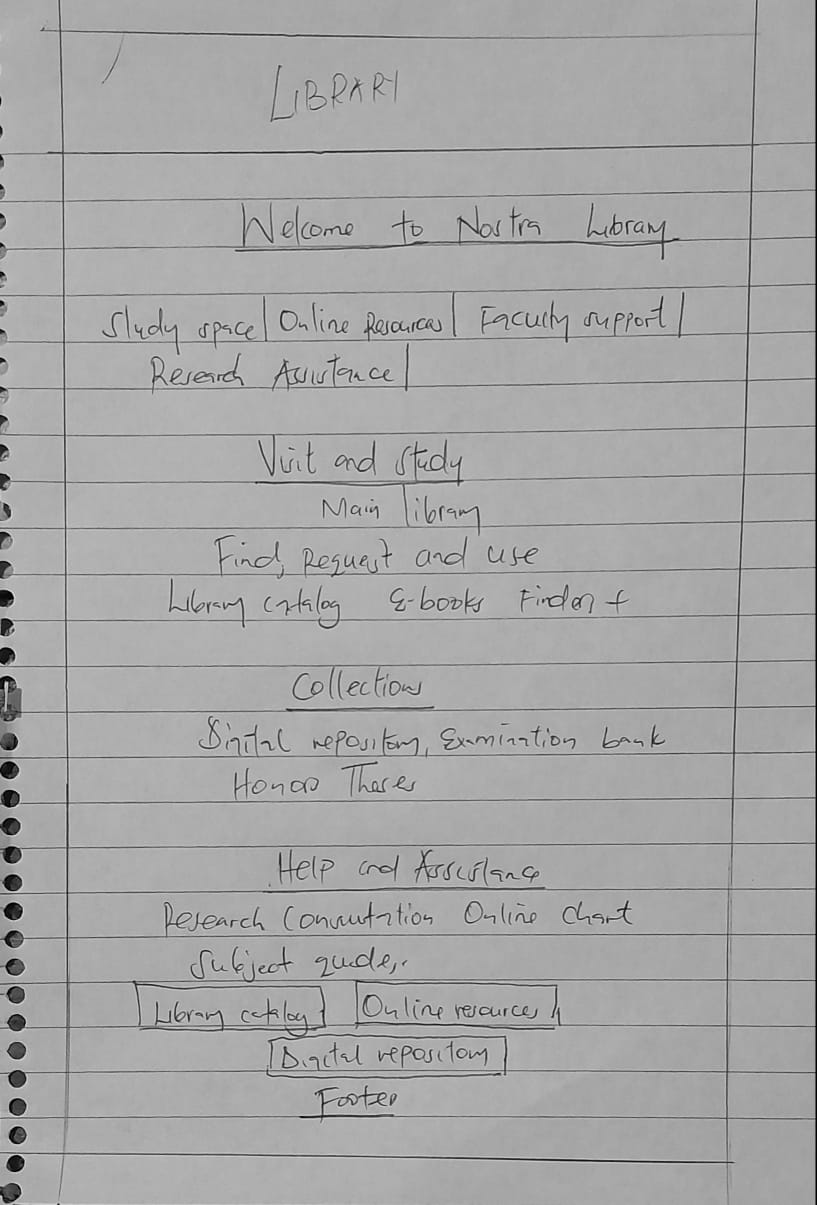 LIBRARY
Welcome to Nostra Library
Study space | Online Resources | Faculty support |
Research Assistance |
Visit and Study
Main library
Find, Request and use
Library catalog E-books
Collections
Digital repository, Examination bank
Honors Theses
Help and Assistance
Research Consultation Online chart
Subject guides.
Library catalog Online resources
Digital repository
Footer